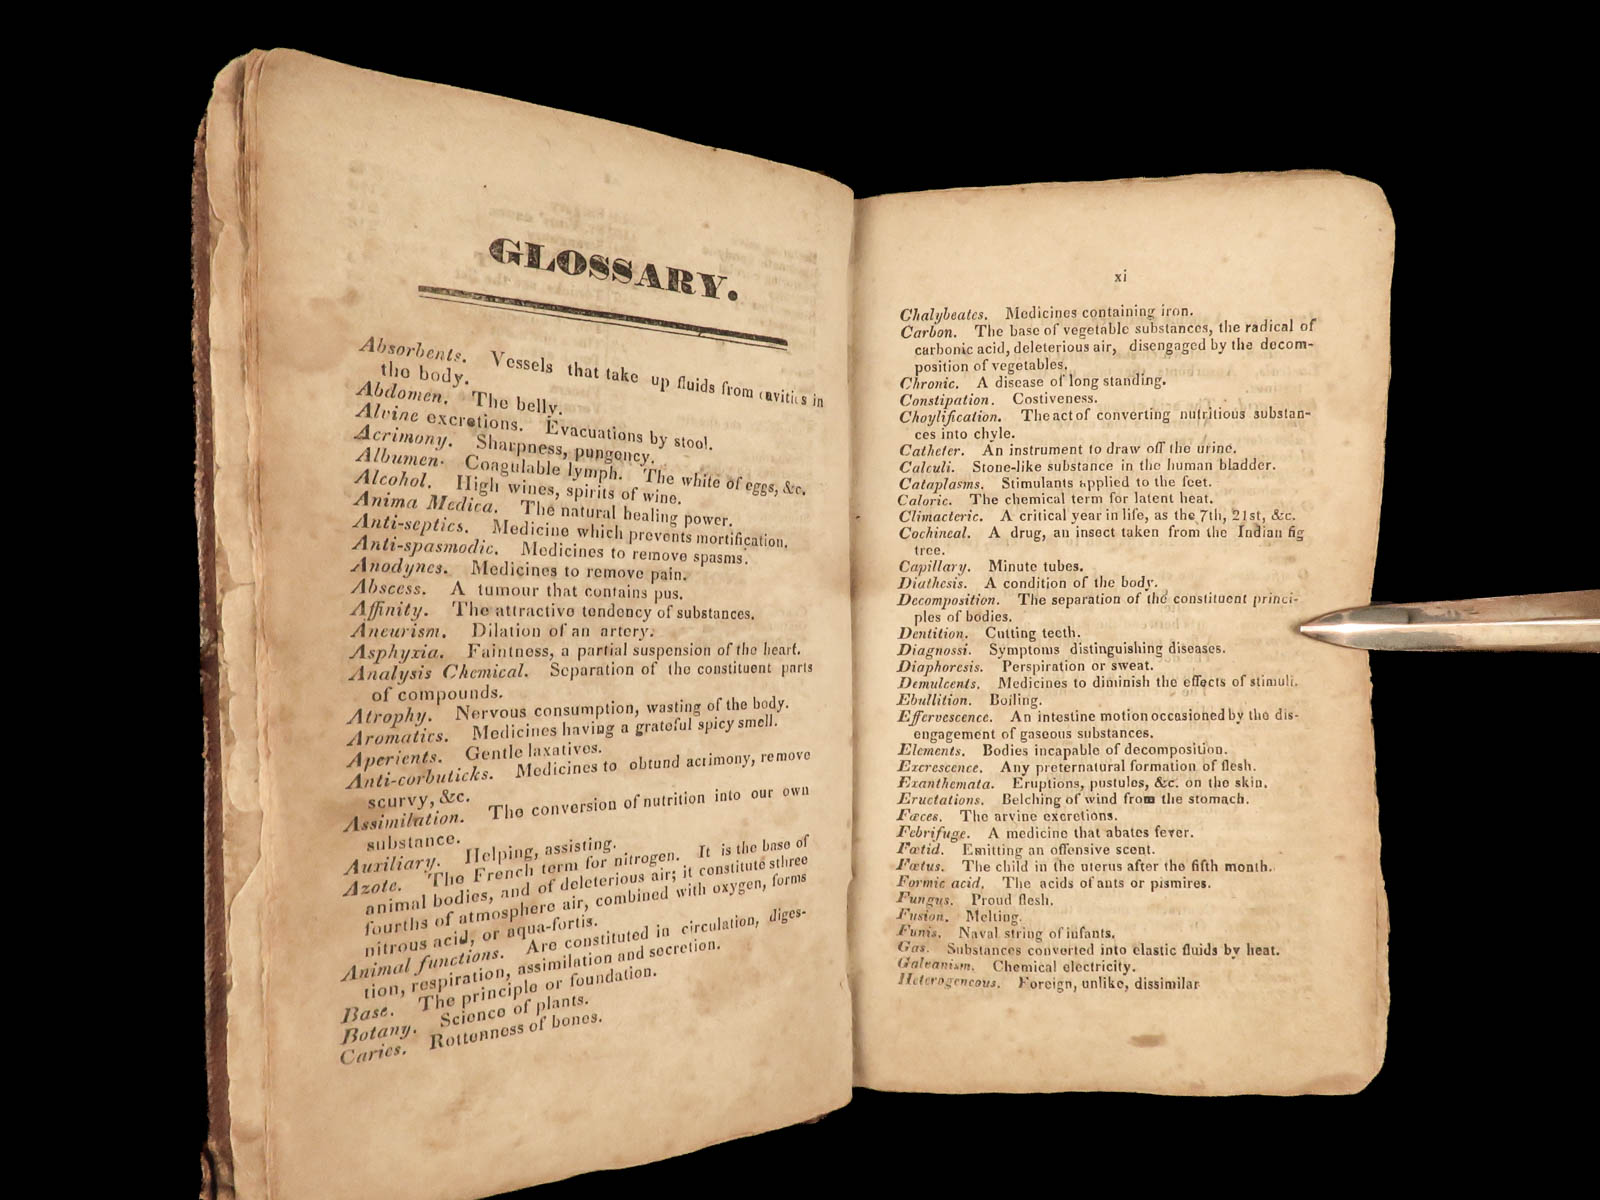 GLOSSARY.
Absorbents. Vessels that take up fluids from cavities in
the body.
Abdomen. The belly.
Alvine excretions. Evacuations by stool.
Acrimony. Sharpness, pungency.
Albumen. Coagulable lymph. The white of eggs, &c.
Alcohol. High wines, spirits of wine.
Anima Medica. The natural healing power.
Anti-septics. Medicine which prevents mortification.
Anti-spasmodic. Medicines to remove spasms.
Anodynes. Medicines to remove pain.
Abscess. A tumour that contains pus.
Affinity. The attractive tendency of substances.
Aneurism. Dilation of an artery.
Asphyxia. Faintness, a partial suspension of the heart.
Analysis Chemical. Separation of the constituent parts
of compounds.
Atrophy. Nervous consumption, wasting of the body.
Aromatics. Medicines having a grateful spicy smell.
Aperients. Gentle laxatives.
Anti-corbuticks. Medicines to obtund acrimony, remove
scurvy, &c.
Assimilation. The conversion of nutrition into our own
substance.
Auxiliary. Helping, assisting.
Azote. The French term for nitrogen. It is the base of
animal bodies, and of deleterious air; it constitute sthree
fourths of atmosphere air, combined with oxygen, forms
nitrous acid, or aqua-fortis.
Animal functions. Are constituted in circulation, diges-
tion, respiration, assimilation and secretion.
Base. The principle or foundation.
Botany. Science of plants.
Caries. Rottenness of bones.
xi
Chalybeates. Medicines containing iron.
Carbon. The base of vegetable substances, the radical of
carbonic acid, deleterious air, disengaged by the decom-
position of vegetables.
Chronic. A disease of long standing.
Constipation. Costiveness.
Choylification. The act of converting nutritious substan-
ces into chyle.
Catheter. An instrument to draw off the urine.
Calculi. Stone-like substance in the human bladder.
Cataplasms. Stimulants applied to the feet.
Caloric. The chemical term for latent heat.
Climacteric. A critical year in life, as the 7th, 21st, &c.
Cochineal. A drug, an insect taken from the Indian fig
tree.
Capillary. Minute tubes.
Diathesis. A condition of the body.
Decomposition. The separation of the constituent princi-
ples of bodies.
Dentition. Cutting teeth.
Diagnossi. Symptoms distinguishing diseases.
Diaphoresis. Perspiration or sweat.
Demulcents. Medicines to diminish the effects of stimuli.
Ebullition. Boiling.
Effervescence. An intestine motion occasioned by the dis-
engagement of gaseous substances.
Elements. Bodies incapable of decomposition.
Excrescence. Any preternatural formation of flesh.
Exanthemata. Eruptions, pustules, &c. on the skin.
Eructations. Belching of wind from the stomach.
Fæces. The arvine excretions.
Febrifuge. A medicine that abates fever.
Fœtid. Emitting an offensive scent.
Fœtus. The child in the uterus after the fifth month.
Formic acid. The acids of ants or pismires.
Fungus. Proud flesh.
Fusion. Melting.
Funis. Naval string of infants.
Gas. Substances converted into elastic fluids by heat.
Galvanism. Chemical electricity.
Heterogeneous. Foreign, unlike, dissimilar